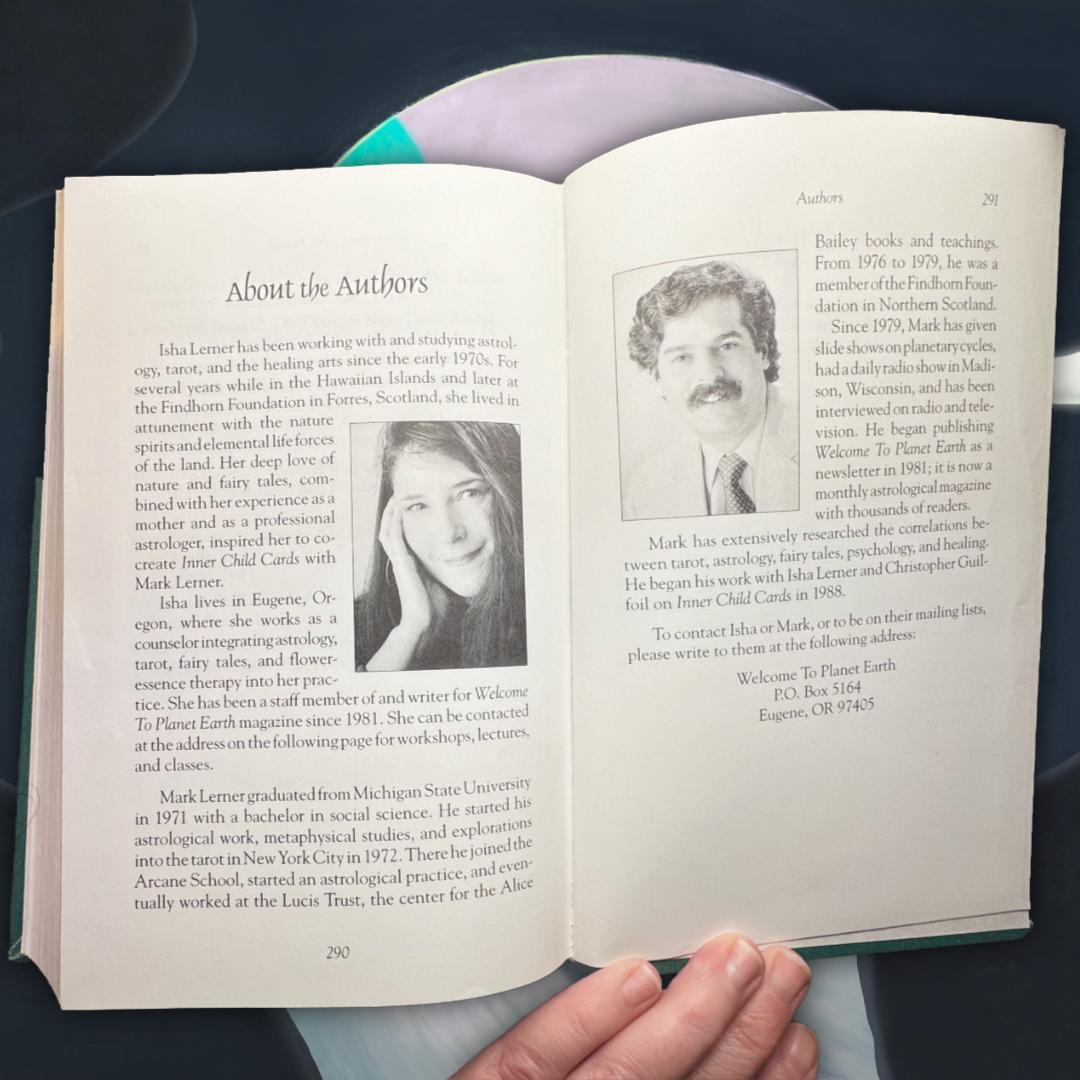 About the Authors
Isha Lerner has been working with and studying astrol-
ogy, tarot, and the healing arts since the early 1970s. For
several years while in the Hawaiian Islands and later at
the Findhorn Foundation in Forres, Scotland, she lived in
attunement with the nature
spirits and elemental life forces
of the land. Her deep love of
nature and fairy tales, com-
bined with her experience as a
mother and as a professional
astrologer, inspired her to co-
create Inner Child Cards with
Mark Lerner.
Isha lives in Eugene, Or-
egon, where she works as a
counselor integrating astrology,
tarot, fairy tales, and flower-
essence therapy into her prac-
tice. She has been a staff member of and writer for Welcome
To Planet Earth magazine since 1981. She can be contacted
at the address on the following page for workshops, lectures,
and classes.
Mark Lerner graduated from Michigan State University
in 1971 with a bachelor in social science. He started his
astrological work, metaphysical studies, and explorations
into the tarot in New York City in 1972. There he joined the
Arcane School, started an astrological practice, and even-
tually worked at the Lucis Trust, the center for the Alice
290
Authors 291
Bailey books and teachings.
From 1976 to 1979, he was a
member of the Findhorn Foun-
dation in Northern Scotland.
Since 1979, Mark has given
slide shows on planetary cycles,
had a daily radio show in Madi-
son, Wisconsin, and has been
interviewed on radio and tele-
vision. He began publishing
Welcome To Planet Earth as a
newsletter in 1981; it is now a
monthly astrological magazine
with thousands of readers.
Mark has extensively researched the correlations be-
tween tarot, astrology, fairy tales, psychology, and healing.
He began his work with Isha Lerner and Christopher Guil-
foil on Inner Child Cards in 1988.
To contact Isha or Mark, or to be on their mailing lists,
please write to them at the following address:
Welcome To Planet Earth
P.O. Box 5164
Eugene, OR 97405